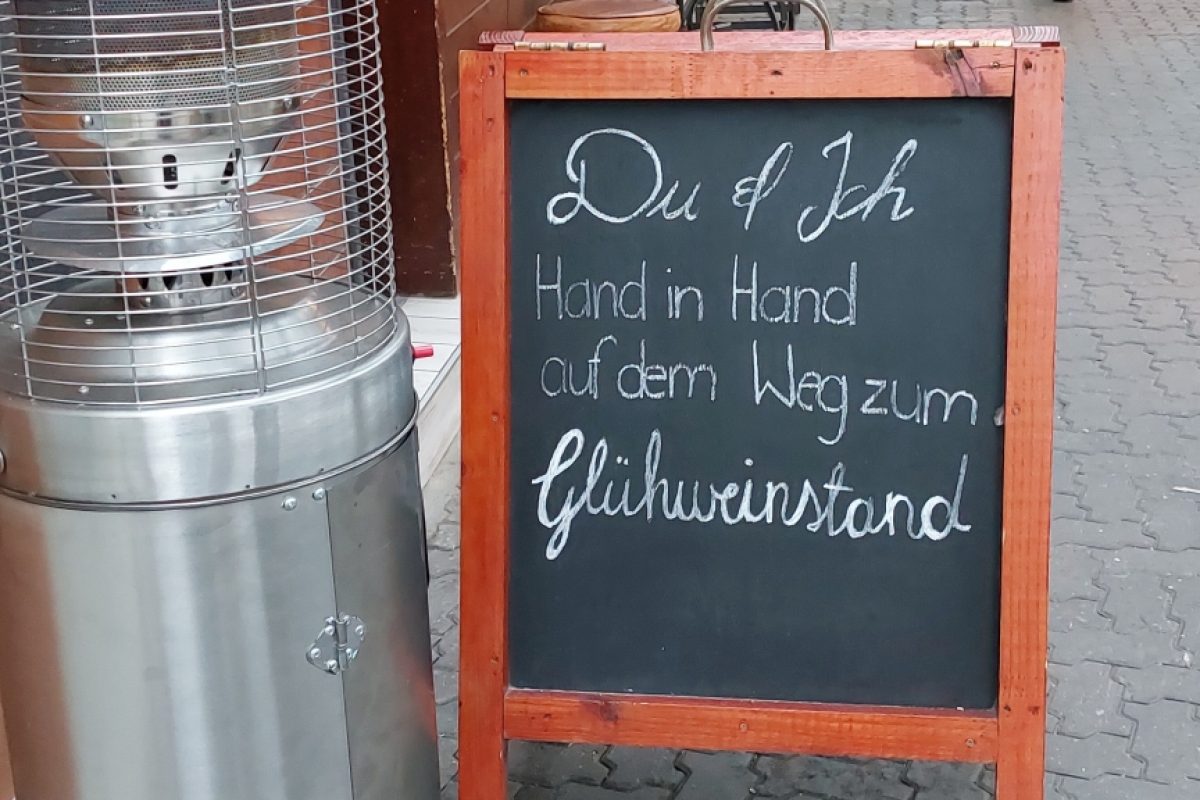 Du & Ich
Hand in Hand
auf dem Weg zum
Glühweinstand